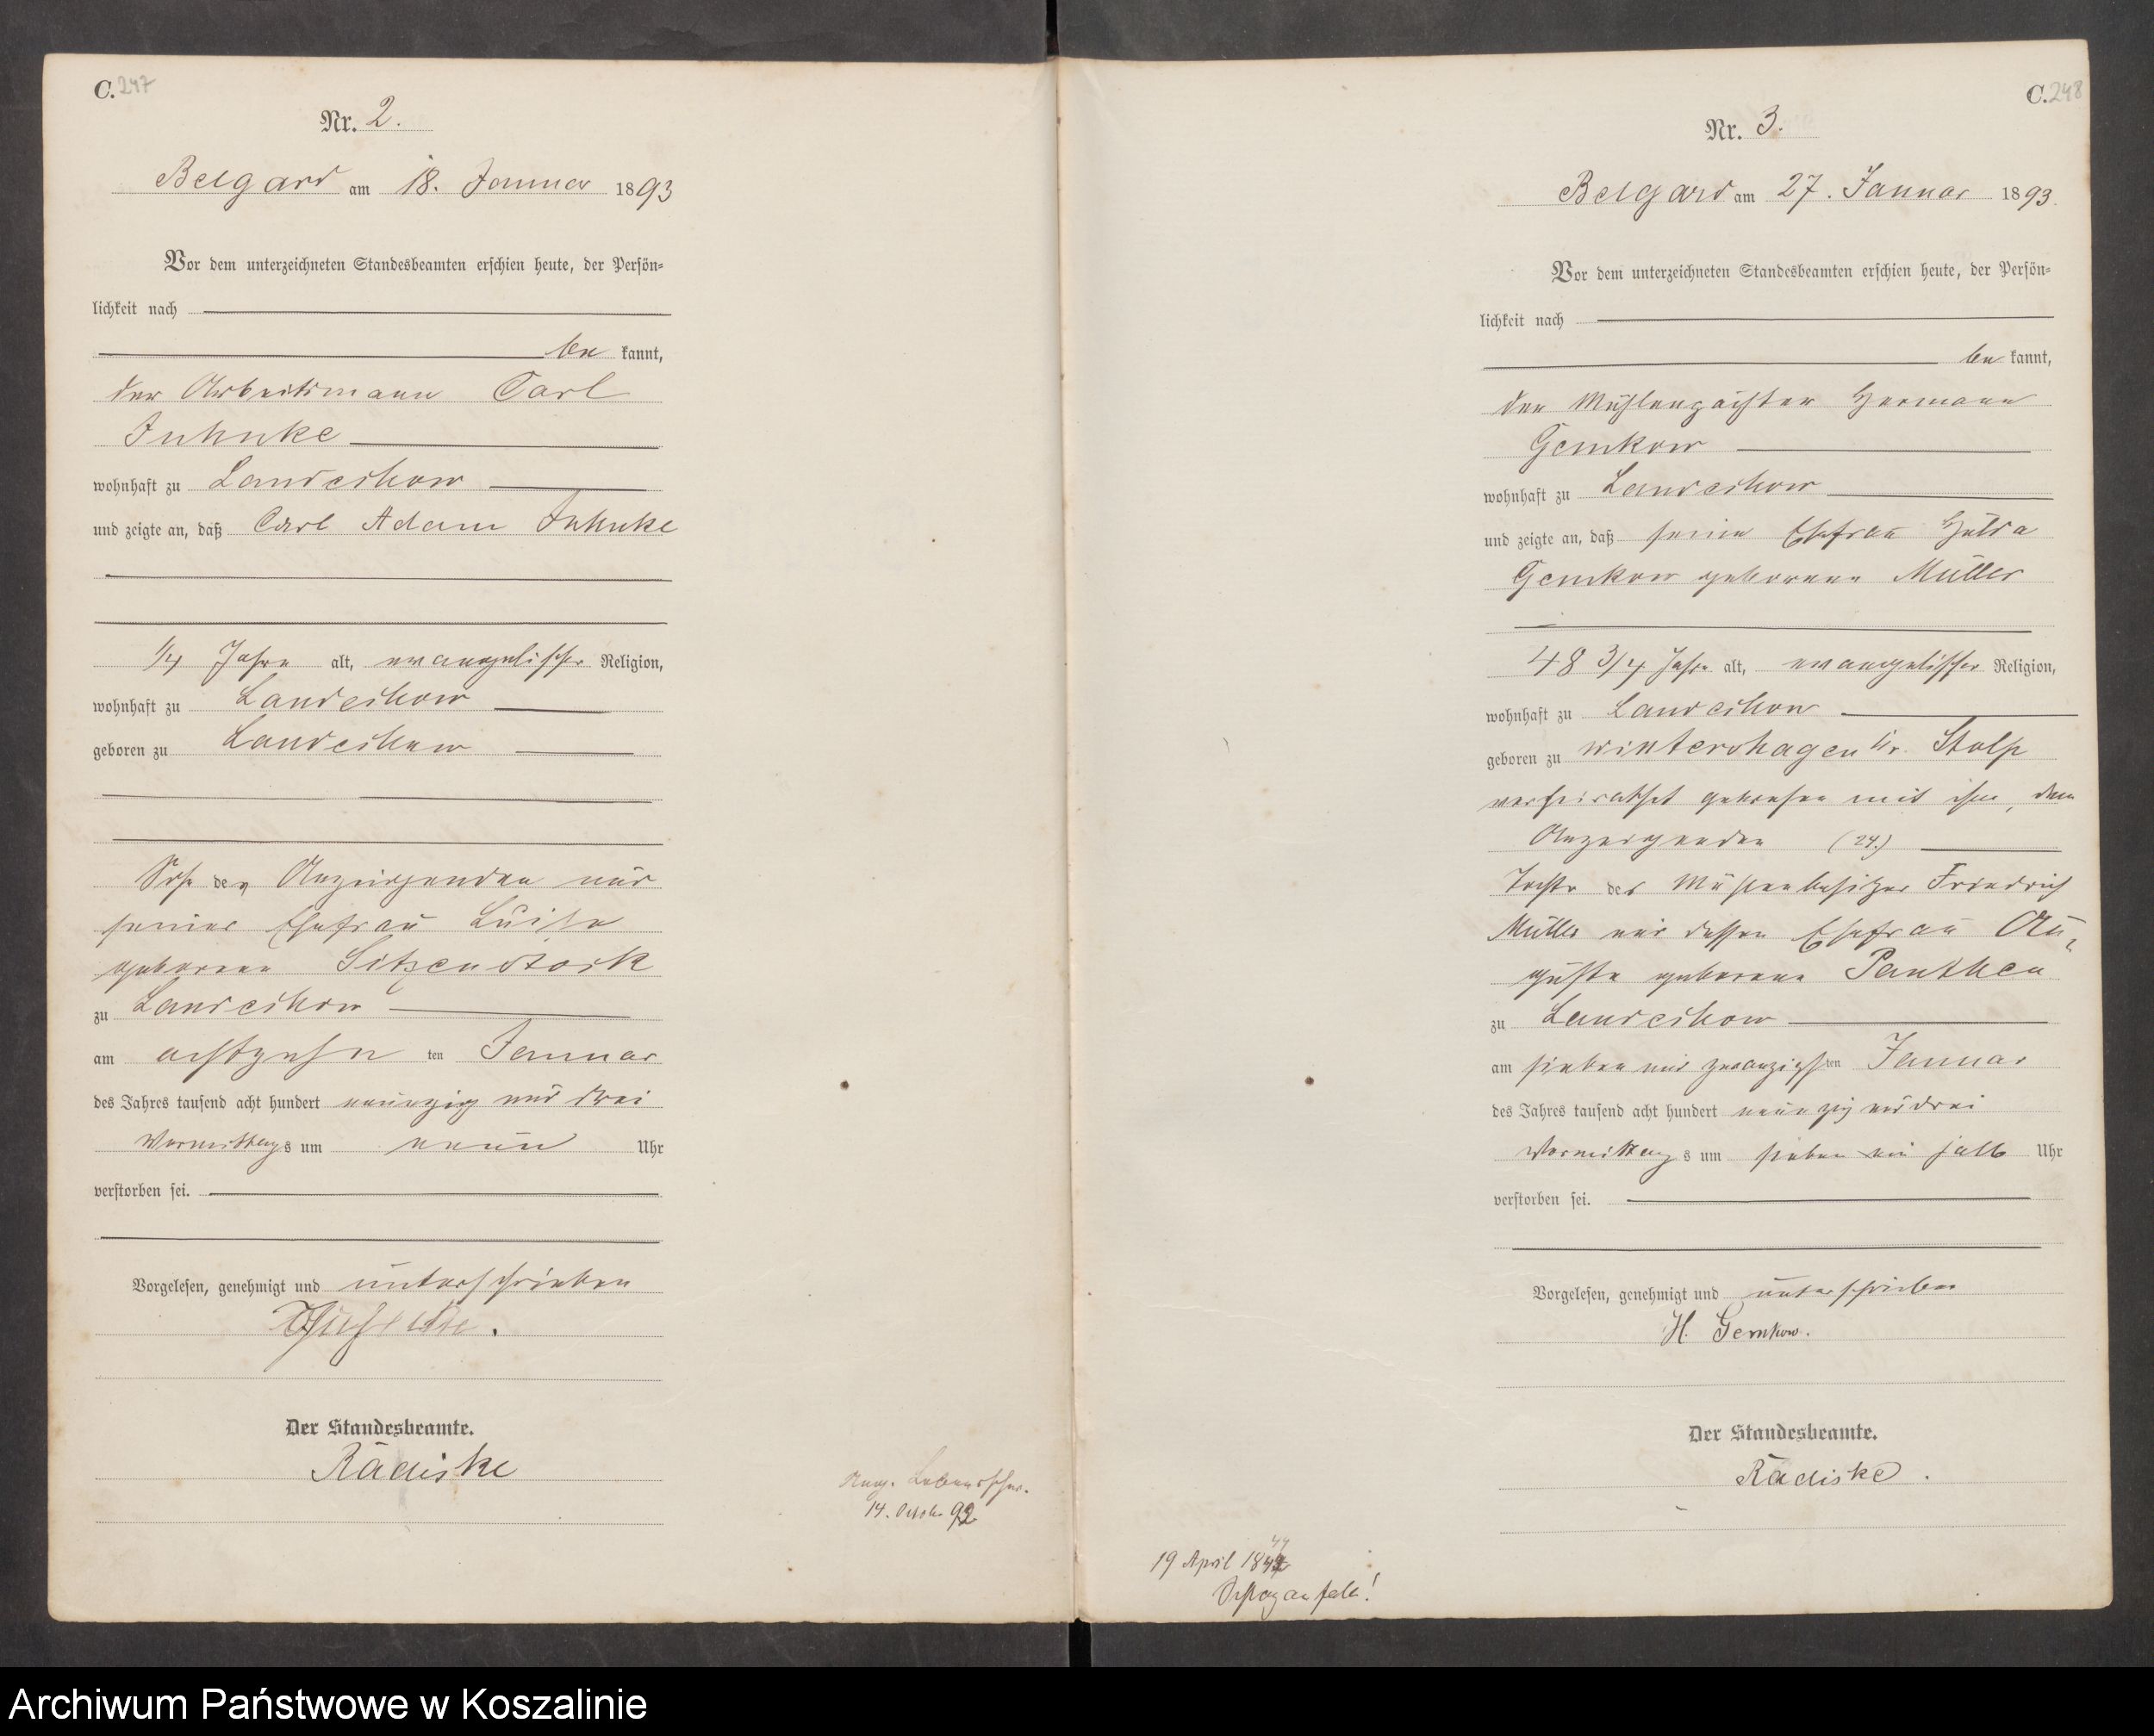 C. 247
Nr. 2.
Belgard am 18. Januar 1893
Vor dem unterzeichneten Standesbeamten erschien heute, der Persön=
lichkeit nach
be kannt,
der Arbeitsmann Carl
Juhnke
wohnhaft zu Landechow
und zeigte an, daß Carl Adam Juhnke
1/4 Jahre alt, evangelischer Religion,
wohnhaft zu Landechow
geboren zu Landechow
Sohn des Anzeigenden und
seiner Ehefrau Luise
geborene Sitzenstock
zu Landechow
am achtzehn ten Januar
des Jahres tausend acht hundert neunzig und drei
Vormittags um neun Uhr
verstorben sei.
Vorgelesen, genehmigt und unterschrieben
Der Standesbeamte.
Radiske
14. Octob. 92
C. 248
Nr. 3.
Belgard am 27. Januar 1893
Vor dem unterzeichneten Standesbeamten erschien heute, der Persön=
lichkeit nach
be kannt,
der Mühlenpächter Hermann
Gemkow
wohnhaft zu Landechow
und zeigte an, daß seine Ehefrau Hulda
Gemkow geborene Müller
48 3/4 Jahre alt, evangelischer Religion,
wohnhaft zu Landechow
geboren zu Wintershagen Kr. Stolp
verheirathet gewesen mit ihm, dem
Anzeigenden (24.)
Tochter des Mühlenbesitzer Friedrich
Müller und dessen Ehefrau Au=
guste geborene Panthen
zu Landechow
am sieben und zwanzigsten Januar
des Jahres tausend acht hundert neunzig und drei
Vormittags um sieben ein halb Uhr
verstorben sei.
Vorgelesen, genehmigt und unterschrieben
H. Gemkow.
Der Standesbeamte.
Radiske.
19 April 1844
Schlaganfall!
Archiwum Państwowe w Koszalinie